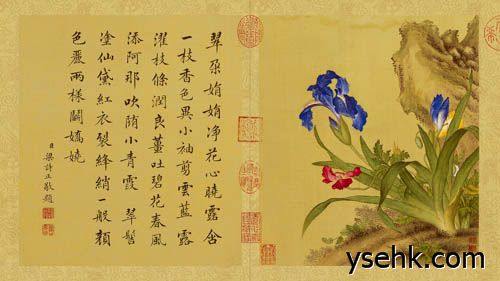 翠朶娟娟净花心曉露含
一枝香色異小袖剪雲藍露
濯枝條潤良薑吐碧花春風
添阿那吹陏小青霞 翠髻
塗仙黛紅衣裂絳綃一般顏
色麗兩樣鬭嬌嬈
臣梁詩正敬題
ysehk.com